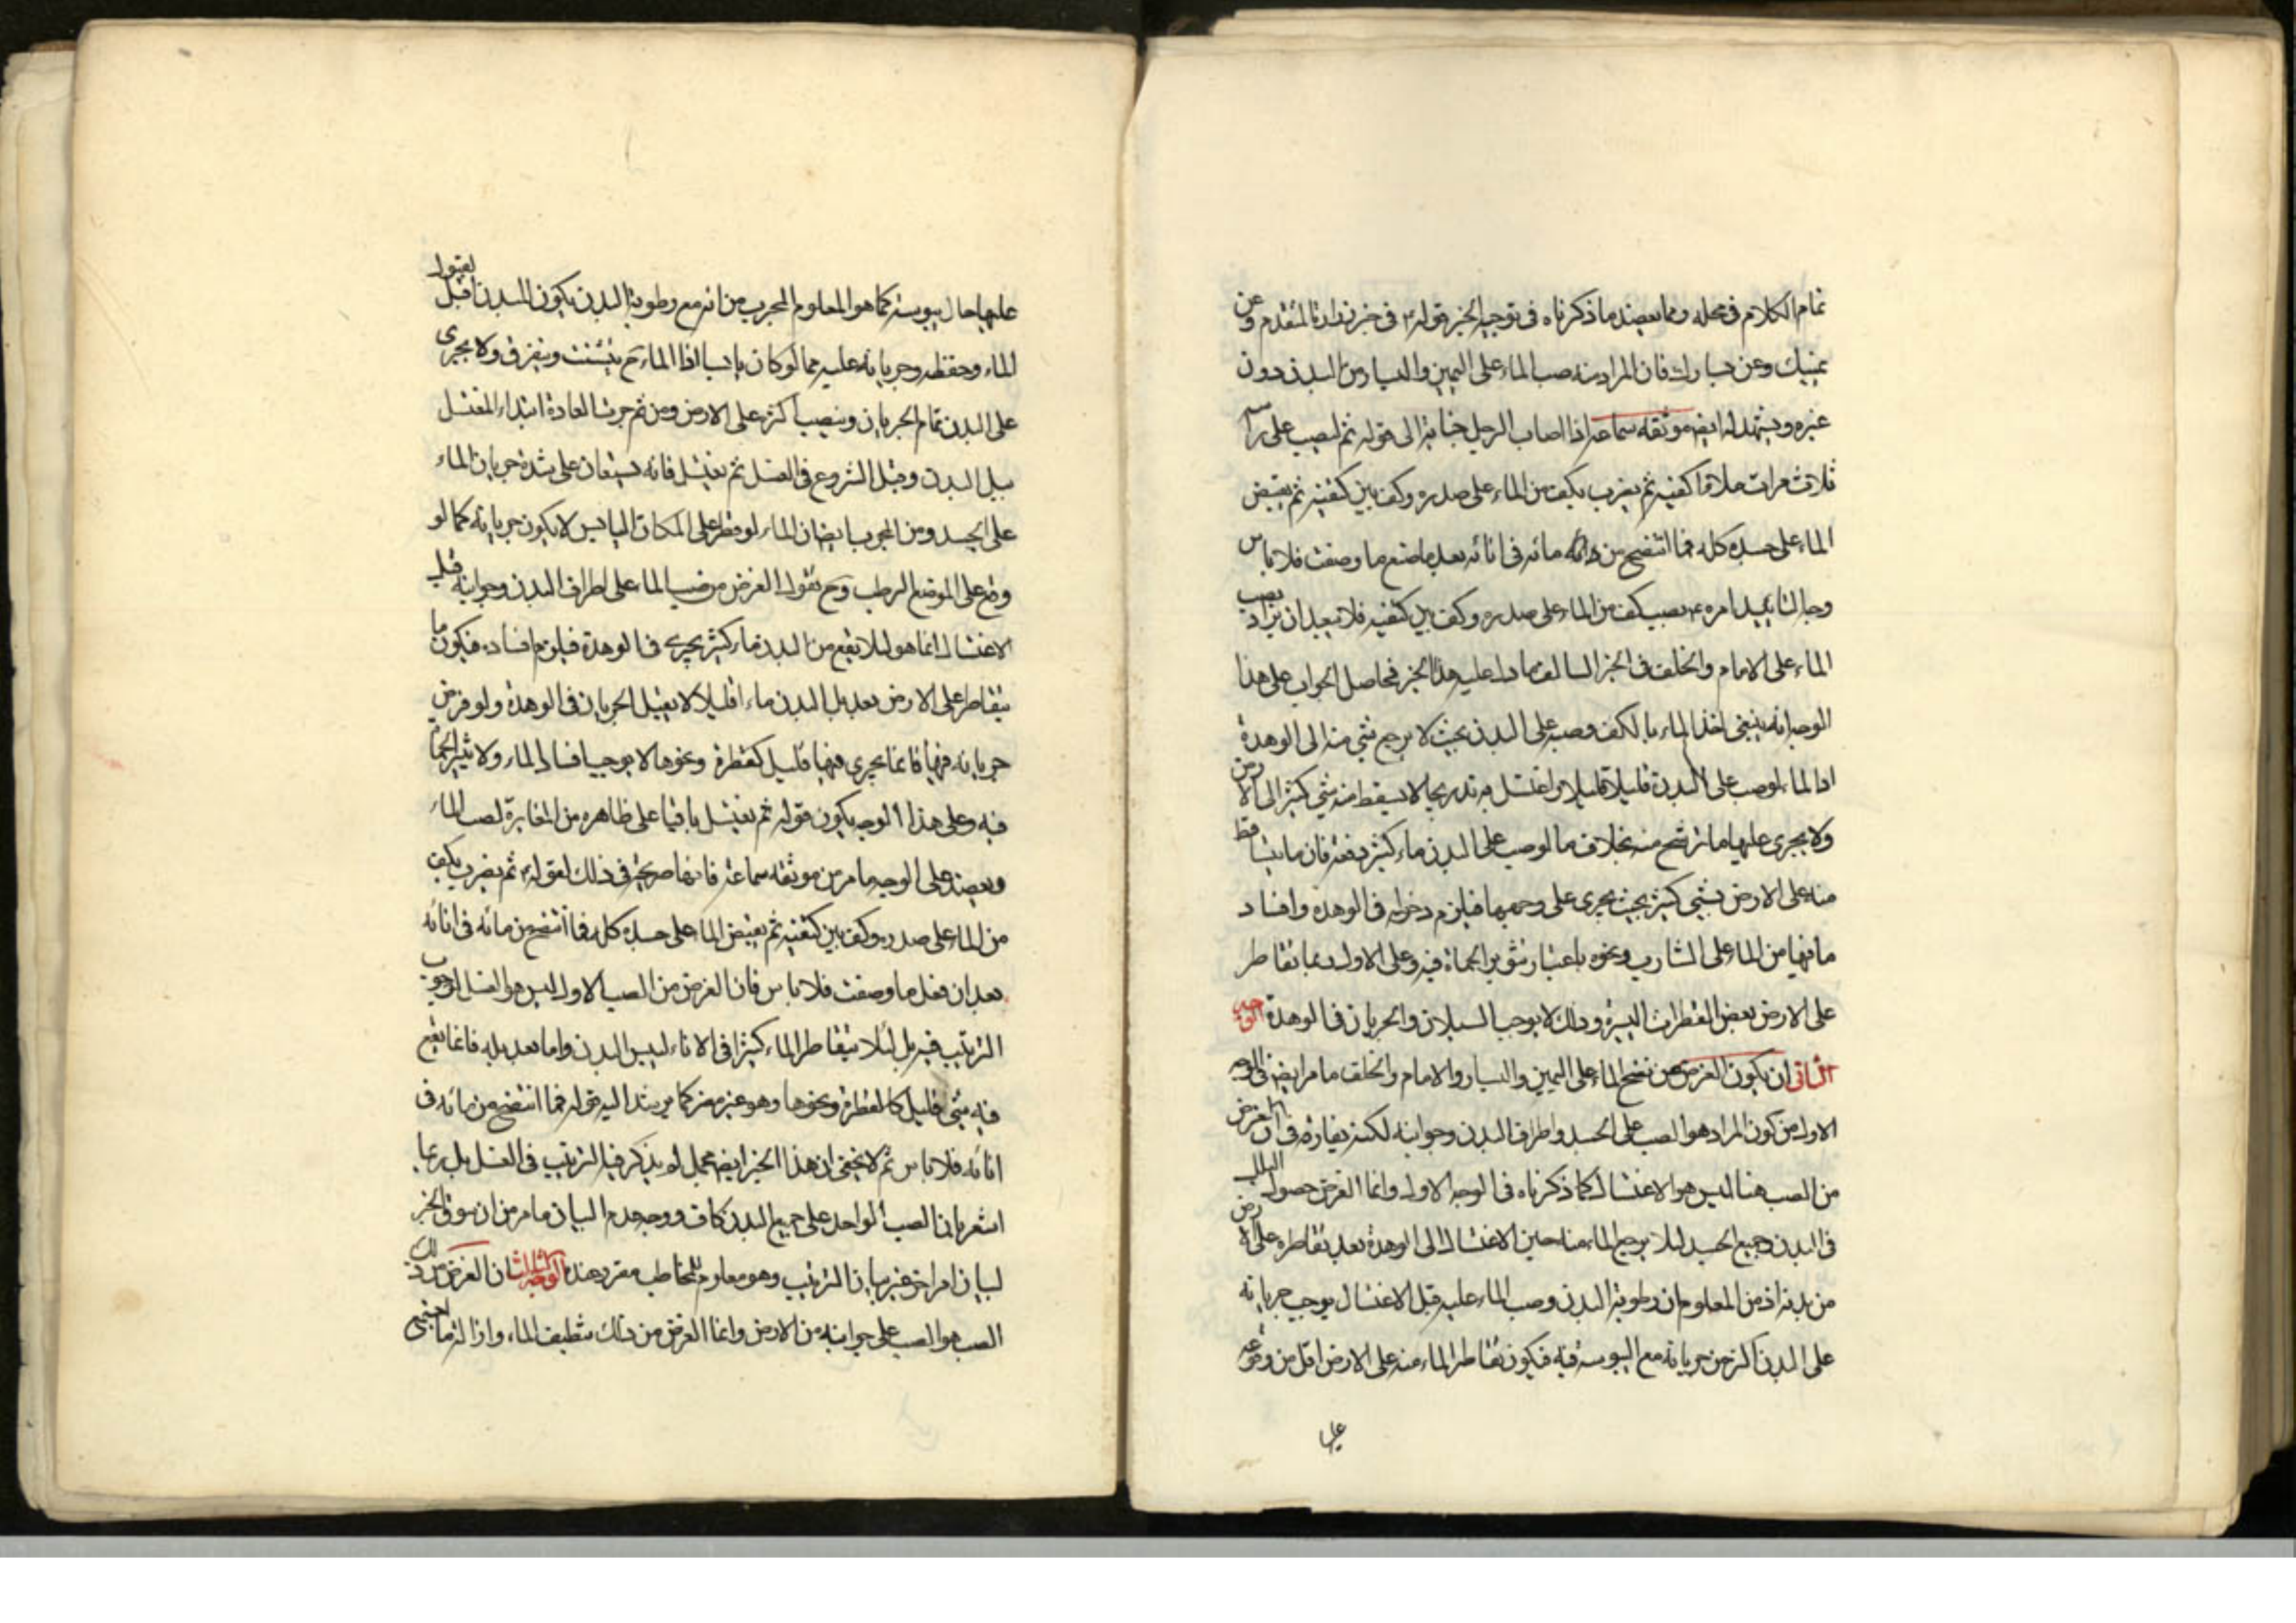 تمام الكلام فى محله ومما يعضد ما ذكرناه فى توجيه الخبر قوله ع فى خبر المتقدم وعن
يمينك وعن يسارك فان المراد منه صب الماء على اليمين واليسار من البدن دون
غيره ويشهد له ايضا موثقه سماعه اذا اصاب الرجل جنابة الى قوله ثم ليصب على راسه
ثلاث مرات ملاء كفيه ثم يضرب بكف من الماء على صدره وكف بين كتفيه ثم يفيض
الماء على جسده كله فما انتضح من مائه فى انائه بعد ما صنع ما وصفت فلا باس
وجه التاييد امره ع بصب كف من الماء على صدره وكف بين كتفيه فلا يبعد ان يراد بصب
الماء على الامام والخلف فى الخبر السالف ما دل عليه هذا الخبر فحاصل الجواب على هذا
الوجه انه ينبغى اخذ الماء بالكف وصبه على البدن بحيث لا يرجع شئ منه الى الوهدة
اذ الماء لو صب على البدن قليلا قليلا واغتسل به تدريجا لا يسقط منه شئ كثير الى الارض
ولا يجرى عليها ما ترشح منه بخلاف ما لو صب على البدن ماء كثير دفعة فان ما يتساقط
منه على الارض شئ كثير بحيث يجرى على وجهها فيلزم دخوله فى الوهده وافساد
ما فيها من الماء على الشارب ونحوه باعتبار تثوير الحماة فيه وعلى الاول ربما تقاطر
على الارض بعض القطرات اليسيرة وذلك لا يوجب السيلان والجريان فى الوهدة الوجه
الثانى ان يكون الغرض من نضح الماء على اليمين واليسار والامام والخلف ما مر ايضا فى الوجه
الاول من كون المراد هو الصب على الجسد واطراف البدن وجوانبه لكنه يفارقه فى ان الغرض
من الصب هنا ليس هو الاغتسال كما ذكرناه فى الوجه الاول وانما الغرض حصول البلل
فى البدن وجميع الجسد لئلا يرجع الماء منا حين الاغتسال الى الوهدة بعد تقاطره على الارض
من بدنه اذ من المعلوم ان رطوبة البدن وصب الماء عليه قبل الاغتسال يوجب جريانه
على البدن اكثر من جريانه مع اليبوسه فيه فيكون تقاطر الماء منه على الارض اقل من وقوعه
على
عليها حال يبوسته كما هو المعلوم المجرب من انه مع رطوبة البدن يكون البدن اقبل لقبول
الماء وحفظه وجريانه عليه مما لو كان يابسا اذ الماء ح يتشتت ويتفرق ولا يجرى
على البدن تمام الجريان وينصب اكثره على الارض ومن ثم جرت العادة ابتداء المغتسل
ببل البدن وقبل الشروع فى الغسل ثم يغتسل فانه يستعان على شدة جريان الماء
على الجسد ومن المجرب ايضا ان الماء لو قطر على المكان اليابس لا يكون جريانه كما لو
وقع على الموضع الرطب وح نقول الغرض من صب الماء على اطراف البدن وجوانبه قبل
الاغتسال انما هو لئلا يقع من البدن ماء كثير يجرى فى الوهدة فيلزم افساده فيكون ما
يتقاطر على الارض بعد بل البدن ماء قليلا لا يقبل الجريان فى الوهدة ولو فرض
جريانه فيها فانما يجرى فيها قليل كقطرة ونحوها لا يوجب افساد الماء ولا تثير الحماة
فيه وعلى هذا الوجه يكون قوله ثم تغتسل باقيا على ظاهره من المغايرة لصب الماء
ويعضد على الوجه ما مر من موثقه سماعة فانها صريحة فى ذلك لقوله ع ثم يضرب بكف
من الماء على صدره وكف بين كتفيه ثم يفيض الماء على جسده كله فما انتضح من مائه فى انائه
بعد ان فعل ما وصفت فلا باس فان الغرض من الصب الاول ليس هو الغسل لوجوب
الترتيب فيه بل لئلا يتقاطر الماء كثيرا فى الاناء ليبس البدن واما بعد بله فانما يقع
فيه شئ قليل كالقطرة ونحوها وهو غير مضر كما يرشد اليه قوله فما انتضح من مائه فى
انائه فلا باس ثم لا يخفى ان هذا الخبر ايضا مجمل لم يذكر فيه الترتيب فى الغسل بل ربما
اشعر بان الصب الواحد على جميع البدن كاف ووجه عدم البيان ما مر من ان سوق الخبر
لبيان امر اخر غير بيان الترتيب وهو معلوم للمخاطب مقرر عنده الوجه الثالث ان الغرض من ذلك
الصب هو الصب على جوانبه من الارض وانما الغرض من ذلك تنظيف الماء وازالة ما اجتمع